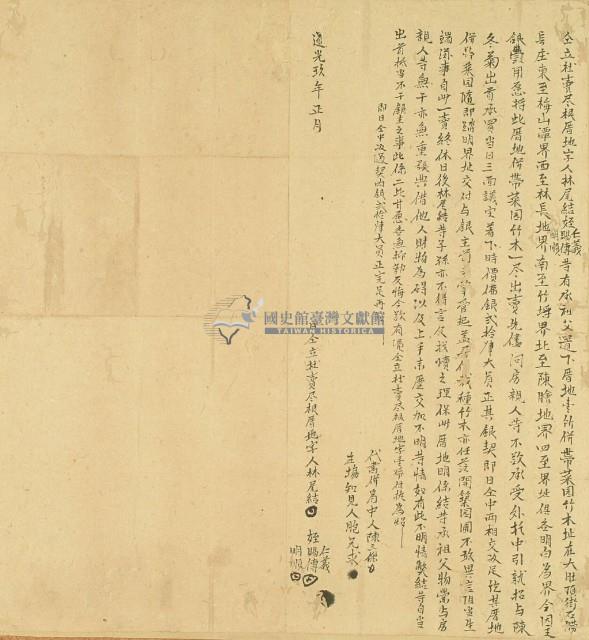 仝立杜賣尽根厝地字人林尾結姪明順賜傳仁義等有承祖父置下厝地壹所併帶菜園竹木址在大肚頂街石階
長庄東至梅山潭界西至林長地界南至竹塒界北至陳膽地界四至界址俱各明白為界今因乏
銀費用愿將此厝地併帶菜園竹木一尽出賣先儘問房親人等不欲承受外托中引就招与陳
冬菊出首承買當日三面議定著下時價佛銀弍拾大員正其銀契即日仝中兩相交收足訖其厝地
併帶菜園隨即踏明界址交付与銀主前去掌管起蓋居住栽種竹木亦任從開築園圃不敢異言阻当生
端滋事自此一賣終休日後林尾結等子孫亦不得言及找贖之理保此厝地明係結等承祖父物業与房
親人等無干亦無重張典借他人財物為碍以及上手來歷交加不明等情如有此不明情弊結等自当
出首抵当不干銀主之事此係二比甘愿各無抑勒反悔今欲有憑仝立杜賣尽根厝地字壹紙付執為炤
即日仝中收過契內銀弍拾大員正完足再炤
代書併為中人陳三
在場知見人胞兄求
道光玖年正月 日仝立杜賣尽根厝地字人林尾結
姪賜傳
仁義
明順
國史館臺灣文獻館
TAIWAN HISTORICA